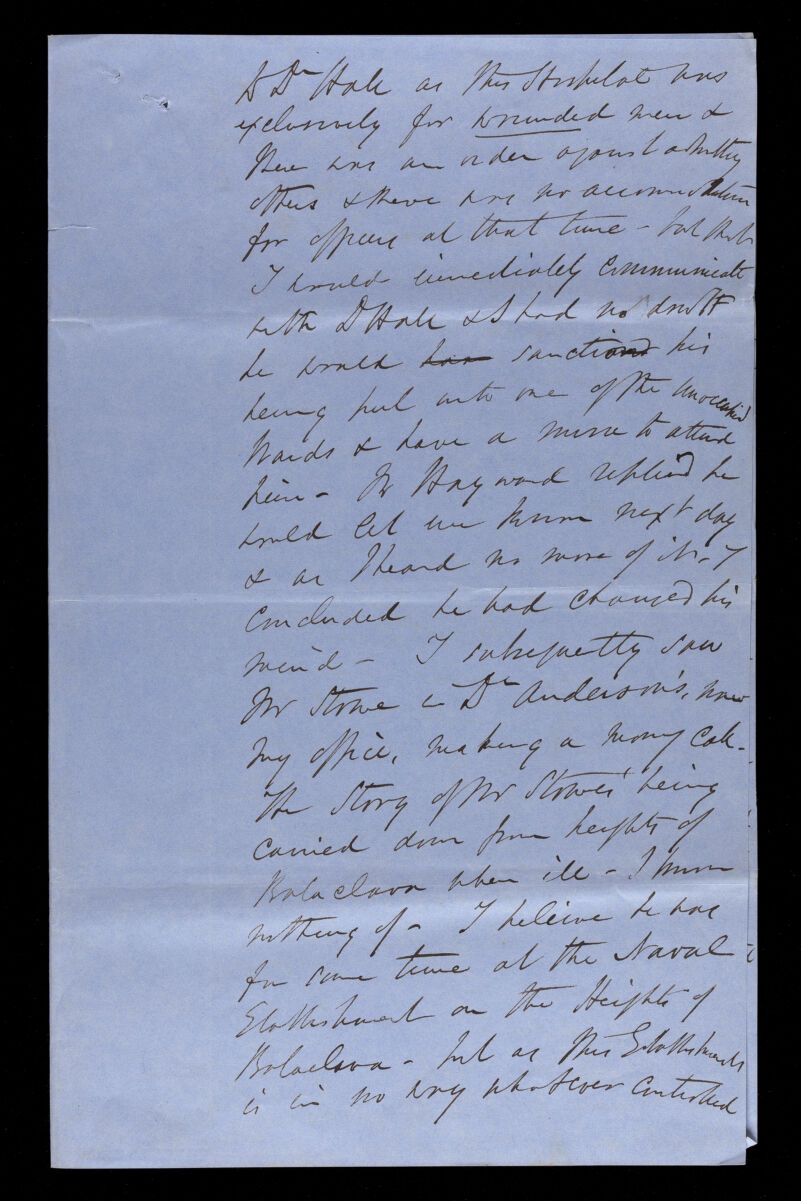 to Dr Hall as this Hospital was
exclusively for wounded men &
there was an order against admitting
others & there was no accommodation
for officers at that time - but that
I would immediately communicate
with Dr Hall & I had no doubt
he would has sanction his
being put into one of the unoccupied
Wards & have a nurse to attend
him - Mr Hayward replied he
would let me know next day
& as I heard no more of it - I
concluded he had changed his
mind - I subsequently saw
Mr Stowe in Dr Anderson's, now
my office, making a morng call -
The Story of Mr Stowes' being
carried down from heights of
Balaclava when ill - I know
nothing of - I beleive he was
for some time at the Naval
Establishment on the Heights of
Balaclava - but as this Establishment
is in no way whatever controlled